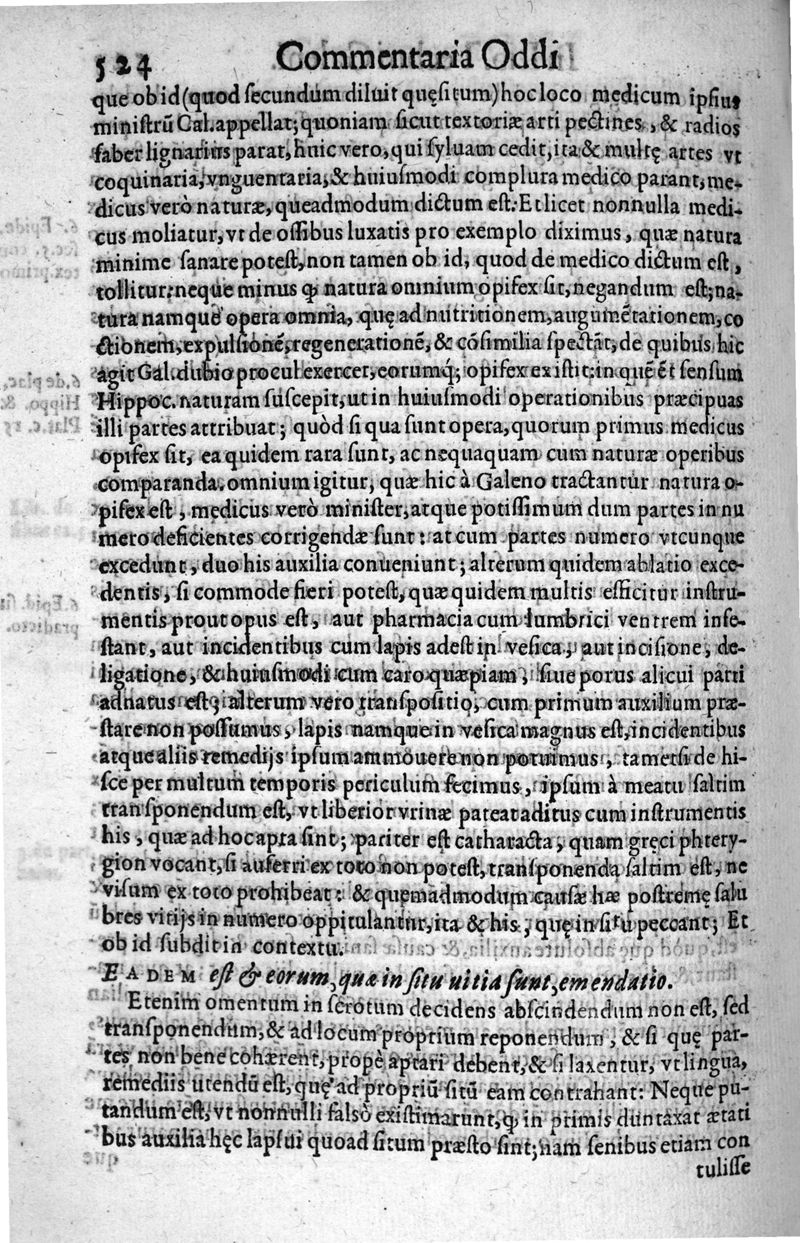 524 Commentaria Oddi
que ob id (quod secundum diluit quęsitum) hoc loco medicum ipsius
ministrũ Gal. appellat; quoniam sicut textoriæ arti pectines, & radios
faber lignarius parat, huic vero, qui syluam cedit, ita & multę artes vt
coquinaria, vnguentaria, & huiusmodi complura medico parant, me-
dicus verò naturæ, queadmodum dictum est. Et licet nonnulla medi-
cus moliatur, vt de ossibus luxatis pro exemplo diximus, quæ natura
minime sanare potest, non tamen ob id, quod de medico dictum est,
tollitur: neque minus ꝙ natura omnium opifex sit, negandum est; na-
tura namque opera omnia, quę ad nutritionem, augumẽtationem, co
ctionem, expulsionẽ, regenerationẽ, & cõsimilia spectãt, de quibus hic
agit Gal. dubio procul exercet, eorumq́; opifex existit: in quẽ ẽt sensum
Hippoc. naturam suscepit, ut in huiusmodi operationibus præcipuas
illi partes attribuat; quòd si qua sunt opera, quorum primus medicus
opifex sit, ea quidem rara sunt, ac nequaquam cum naturæ operibus
comparanda. omnium igitur, quæ hic à Galeno tractantur natura o-
pifex est, medicus verò minister, atque potissimum dum partes in nu
mero deficientes corrigendæ sunt: at cum partes numero vtcunque
excedunt, duo his auxilia conueniunt; alterum quidem ablatio exce-
dentis, si commode fieri potest, quæ quidem multis efficitur instru-
mentis prout opus est, aut pharmacia cum lumbrici ventrem infe-
stant, aut incidentibus cum lapis adest in vesica, aut incisione, de-
ligatione, & huiusmodi cum caro quæpiam, siue porus alicui parti
adnatus est; alterum vero transpositio, cum primum auxilium præ-
stare non possumus, lapis namque in vesica magnus est, incidentibus
atque aliis remedijs ipsum ammouere non potuimus, tametsi de hi-
sce per multum temporis periculum fecimus, ipsum à meatu saltim
transponendum est, vt liberior vrinæ pateat aditus cum instrumentis
his, quæ ad hoc apta sint; pariter est catharacta, quam gręci phtery-
gion vocant, si auferri ex toto non potest, transponenda saltim est, ne
visum ex toto prohibeat: & quęmadmodum causæ hæ postremę salu
bres vitijs in numero oppitulantur, ita & his, quę in situ peccant; Et
ob id subdit in contextu.
EADEM est & eorum, quæ in situ uitia sunt, emendatio.
Etenim omentum in scrotum decidens abscindendum non est, sed
transponendum, & ad locum proprium reponendum, & si quę par-
tes non bene cohærent, propè aptari debent, & si laxentur, vt lingua,
remediis utendũ est, quę ad propriũ sitũ eam contrahant: Neque pu-
tandum est, vt nonnulli falsò existimarunt, ꝙ in primis duntaxat ætati
bus auxilia hęc lapsui quoad situm præsto sint; nam senibus etiam con
tulisse